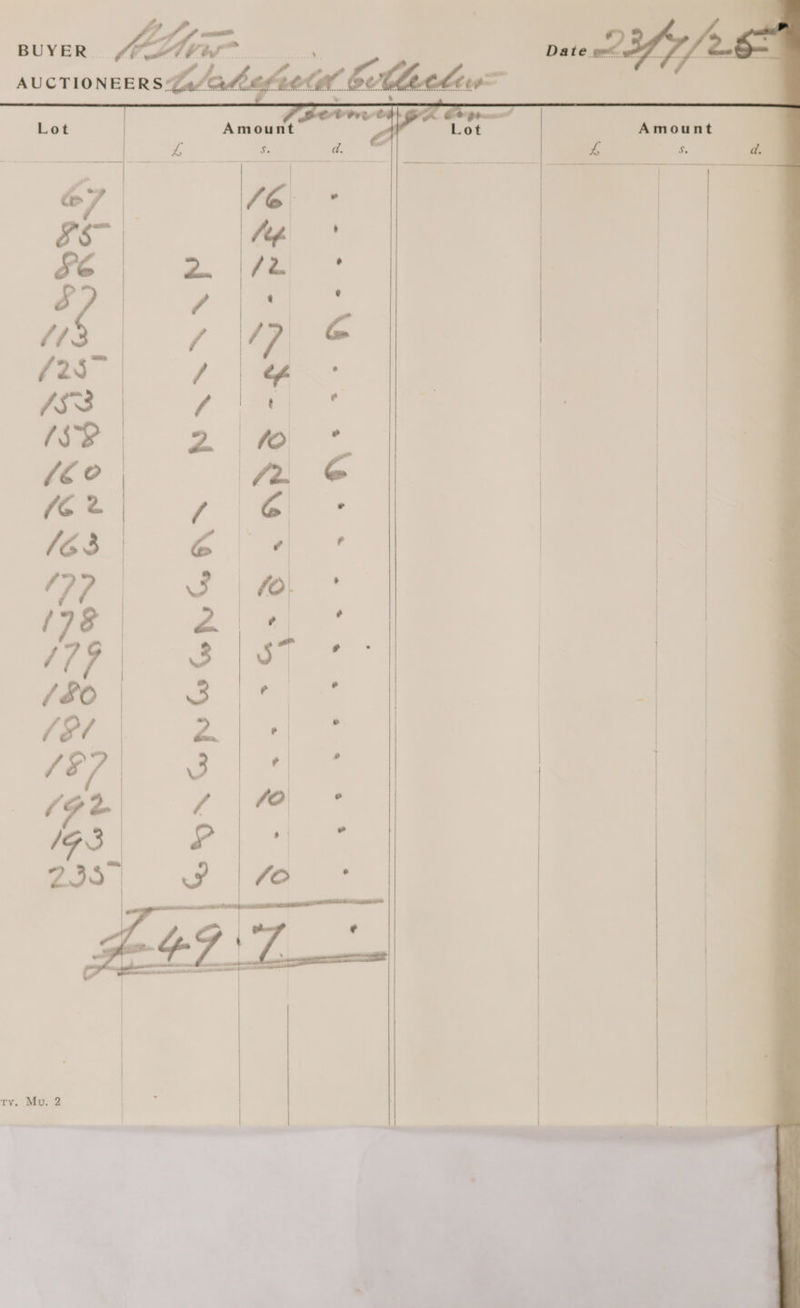 BUYER Date 23/7/25
AUCTIONEERS Wakefield Collection
Lot Amount Lot Amount
£ s. d. £ s. d.
67 16 "
85 14 "
86 2 12 "
87 1 " "
113 1 17 6
125 1 4 "
153 1 " "
158 2 10 "
160 12 6
162 1 6 "
163 6 " "
177 3 10 "
178 2 " "
179 3 5 "
180 3 " "
181 2 " "
187 3 " "
192 1 10 "
193 8 " "
235 3 10 "
£49 7 "
Ty. Mu. 2